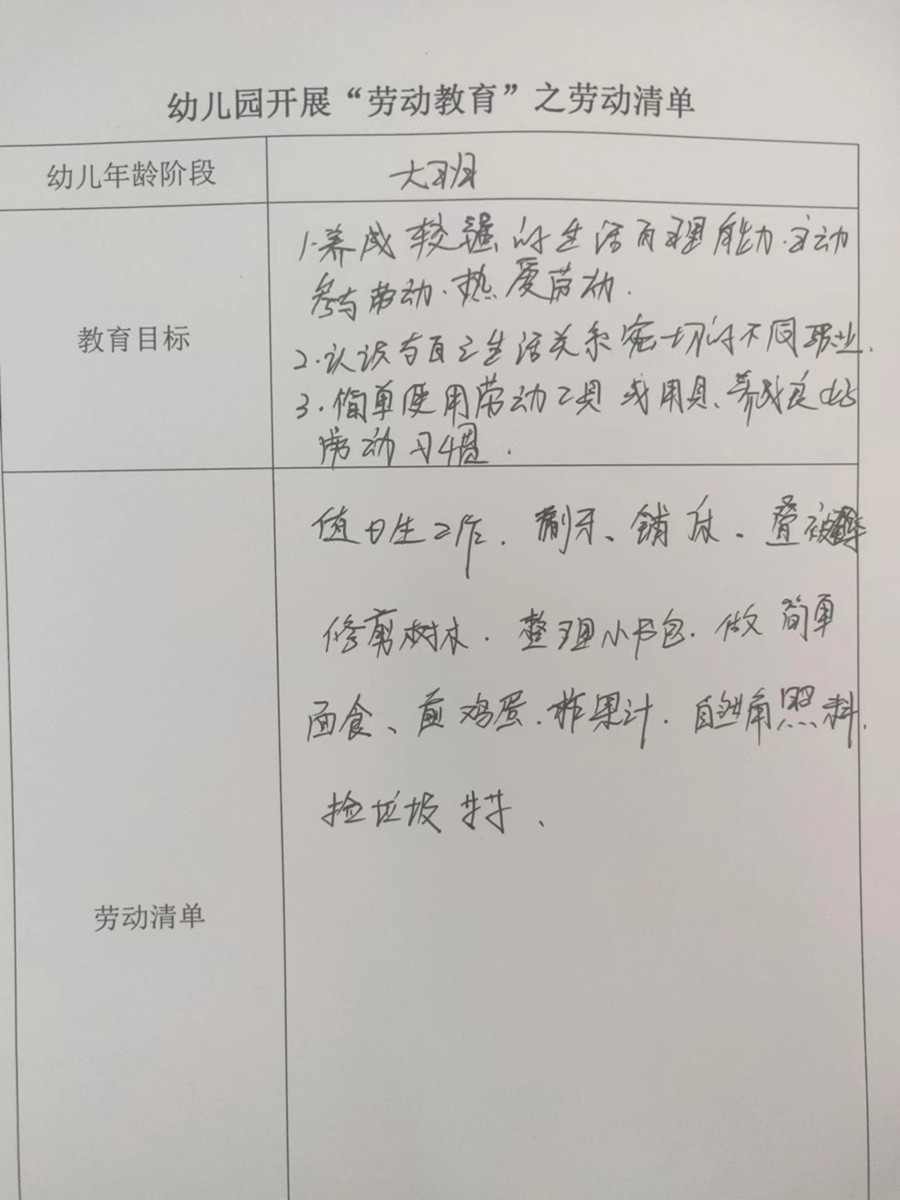 幼儿园开展“劳动教育”之劳动清单
幼儿年龄阶段
大班
教育目标
1.养成较强的生活自理能力.主动
参与劳动.热爱劳动.
2.认识与自己生活关系密切的不同职业.
3.简单使用劳动工具或用具、养成良好
劳动习惯.
劳动清单
值日生工作.刷牙、铺床、叠被
修剪树木.整理小书包.做简单
面食、煎鸡蛋.榨果汁.自然角照料.
捡垃圾等、